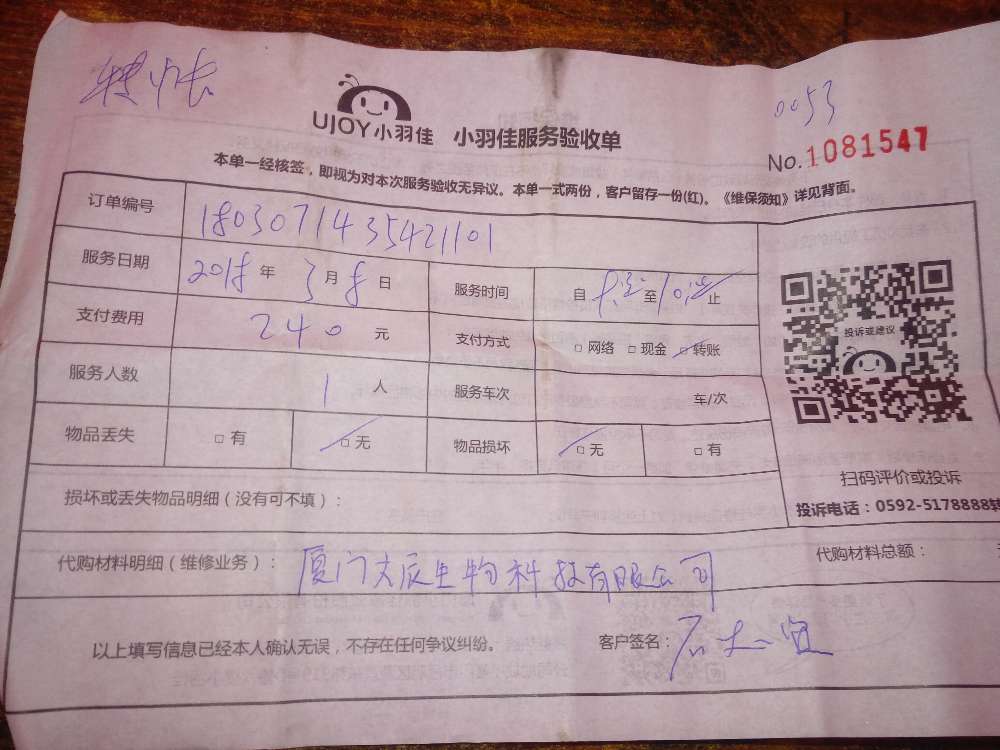 转账
0053
UJOY小羽佳 小羽佳服务验收单
No.1081547
本单一经核签，即视为对本次服务验收无异议。本单一式两份，客户留存一份(红)。《维保须知》详见背面。
订单编号 1803071435421101
服务日期 2018年 3月8日 服务时间 自 至 止
支付费用 240 元 支付方式 □网络 □现金 □转账
投诉或建议
服务人数 1 人 服务车次 车/次
物品丢失 □有 □无 物品损坏 □无 □有
扫码评价或投诉
投诉电话：0592-5178888转
损坏或丢失物品明细（没有可不填）：
代购材料明细（维修业务）： 厦门 生物科技有限公司 代购材料总额：
以上填写信息已经本人确认无误，不存在任何争议纠纷。 客户签名：